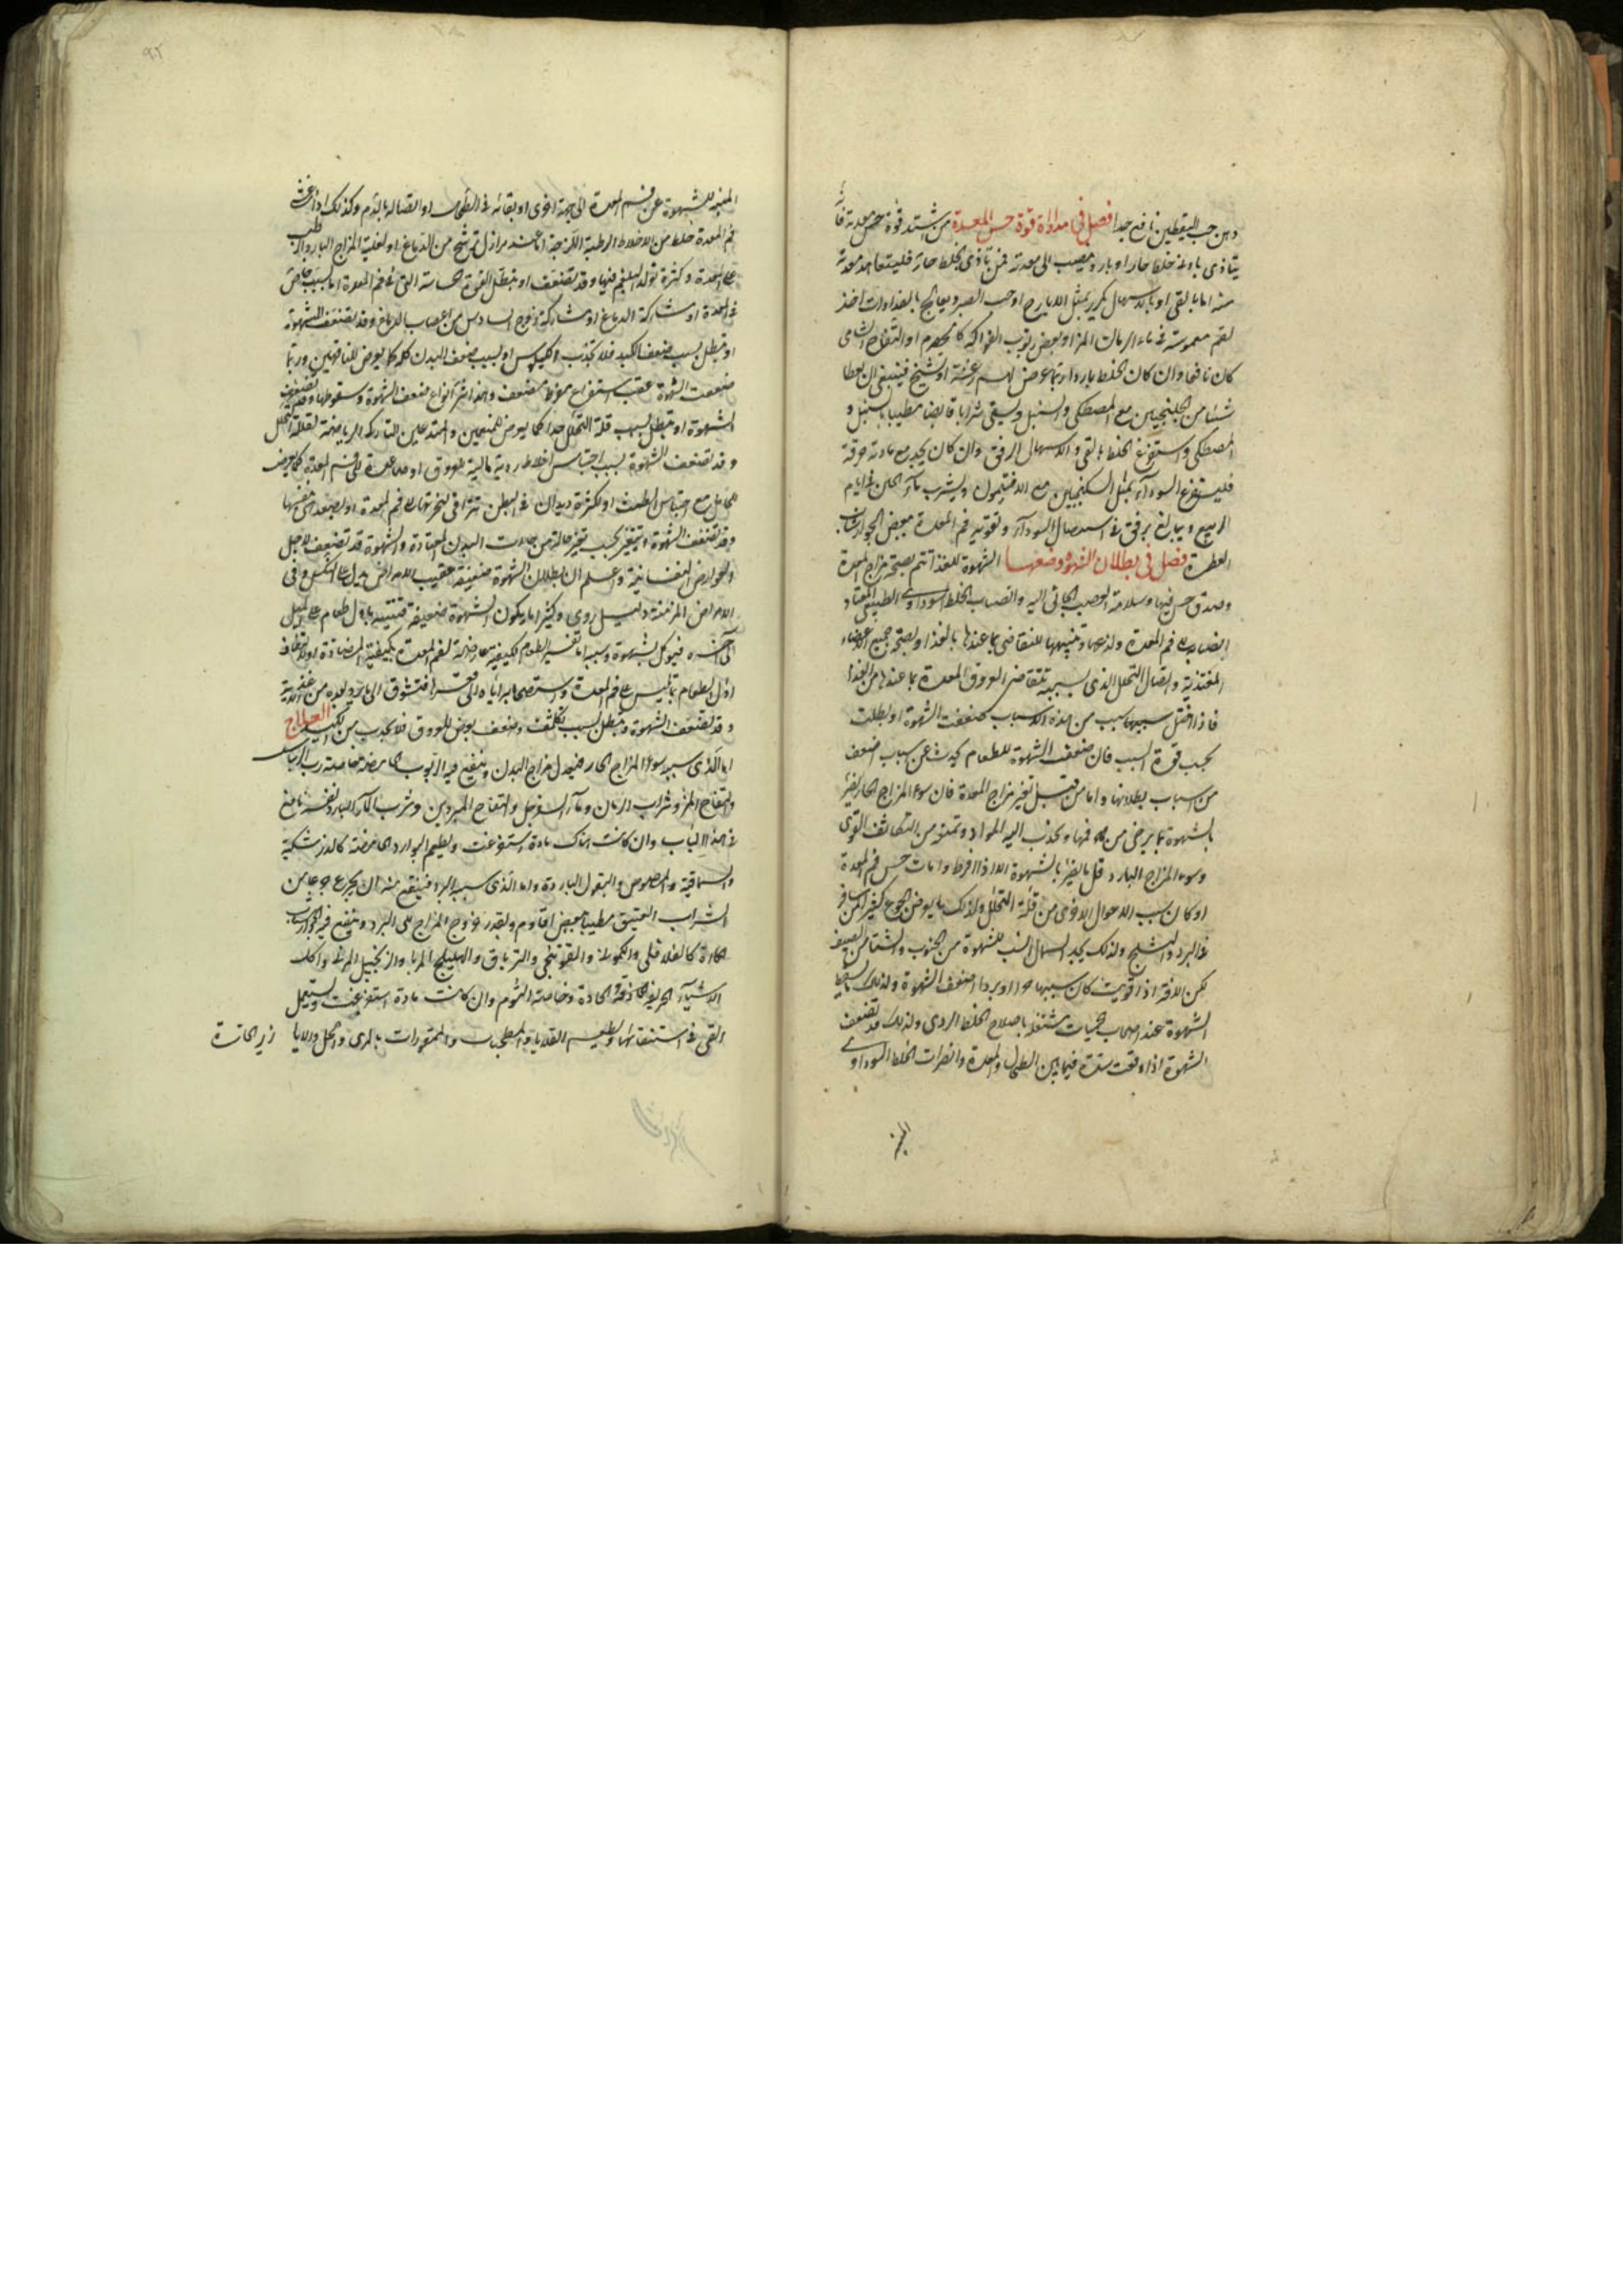 دهن حب اليقطين نافع جدا فصل في مداواة قوة حس المعدة من اشتد قوة حس معدته فانه
يتاذى بادنى خلط حار او بارد يصب الى معدته فمن تاذى بخلط حار فليتعاهد معدته
منه اما بالقى او بالاسهال بمثل الايارج او حب الصبر ويعالج بالغداوات اخذ
لقم مغموسة فى ماء الرمان المز او بعض ربوب الفواكه كالحصرم او التفاح الشامى
كان نافعا وان كان الخلط باردا ربما عرض لهم رعشة او تشنج فينبغى ان يعطا
شيئا من الجلنجبين مع المصطكى والسنبل ويسقى شرابا قابضا مطيبا بالسنبل و
المصطكى واستفرغ الخلط بالقى والاسهال الرفق وان كان يجد مع مادته حرقة
فليستفرغ السوداء بمثل السكنجبين مع الافتيمون ويشرب ماء الجبن فى ايام
الربيع ويبالغ برفق فى استيصال السوداء وتقوية فم المعدة ببعض الجوارشات
العطرة فصل في بطلان الشهوة وضعفها الشهوة للغذا تتم بصحة مزاج المعدة
وصدق حس فيها وسلامة العصب الجائى اليه وانصباب الخلط السوداوى الطبيعى المعتاد
انصبابه الى فم المعدة ولذعها وتنبيهها للتقاضى بما عندها بالغذا وبصحة جميع الاعضاء
المغتذية واتصال التحلل الذى بسببه تتقاضى العروق المعدة بما عندها من الغذا
فاذا اختل سببها سبب من هذه الاسباب ضعفت الشهوة او بطلت
بحسب قوة السبب فان ضعف الشهوة للطعام يحدث عن اسباب اضعف
من اسباب بطلانها واما من قبل تغير مزاج المعدة فان سوء المزاج الحار يضر
بالشهوة بما يرخى من فمها ويجذب اليه المواد وتمنعه من التكاثف القوى
وسوء المزاج البارد قل ما يضر بالشهوة الا اذا افرط وامات حس فم المعدة
او كان سبب الاحوال الاخرى من قلة التحلل ولذلك ما يعرض الجوع كثيرا لمن سافر
فى البرد والثلج ولذلك يجد الشمال انسب للشهوة من الجنوب والشتا من الصيف
لكن الافة اذا قويت كان سببها حرا او بردا اضعف الشهوة ولذلك تسقط
الشهوة عند اصحاب الحميات مشتغلة باصلاح الخلط الردى ولذلك قد تضعف
الشهوة اذا وقعت سدة فيما بين الطحال والمعدة وانصراف الخلط السوداوى
المنبه
المنبه للشهوة عن فم المعدة الى جهة اخرى او بقائه فى الطحال او اتصاله بالدم وكذلك اذا غشى
فم المعدة خلط من الاخلاط الرطبة اللزجة اما عند نوازل ترشح من الدماغ او لغلبة المزاج البارد الرطب
على المعدة وكثرة تولد البلغم فيها وقد تضعف او تبطل القوة الحساسة التى فى فم المعدة اما بسبب خاص
فى المعدة او مشاركة الدماغ او مشاركة الزوج السادس من اعصاب الدماغ وقد تضعف الشهوة
او تبطل بسبب ضعف الكبد فلا تجذب الكيلوس او بسبب ضعف البدن كله كما يعرض للناقهين وربما
ضعفت الشهوة عقب استفراغ مضعف وهذا شر انواع ضعف الشهوة وسقوطها وقد تضعف
الشهوة او تبطل بسبب قلة التحلل جدا كما يعرض للمتنعمين والمتدعين لتاركى الرياضة لقلة التحلل
وقد تضعف الشهوة بسبب احتباس اخلاط ردية مالية للعروق او صاعدة الى فم المعدة كما يعرض
للحامل مع احتباس الطمث او لكثرة ديدان فى البطن تتراقى لبخرتها الى فم المعدة
وقد تضعف الشهوة او تتغير بحسب تغير حالة من حالات البدن المعتادة والشهوة قد تضعف لاجل
العوارض النفسانية واعلم ان بطلان الشهوة ضعيفة عقيب الامراض يدل على النكس وفى
الامراض المزمنة دليل ردى وكثيرا ما يكون الشهوة ضعيفة فتنتبه باول طعام على الميل
الى اخره فيؤكل بشهوة وسببه اما تغيير الطعوم الكيفية معارضة لفم المعدة بكيفيته المضادة او لانعطاف
اول الطعام بما ليس على فم المعدة واستصحابه اياه الى قعرها فتشوق الى ما يرد بعده من غذائه
وقد تضعف الشهوة وتبطل بسبب تكاثف وضعف يعرض للعروق فلا تجذب من الكبد العلاج
اما الذى سببه سوء المزاج الحار فيعدل مزاج البدن وينفع فيه الربوب الحامضة خاصة رب الريباس
والتفاح المز وشراب الرمان وماء السفرجل والتفاح المبردين وشرب الماء البارد نفسه نافع
فى هذا الباب وان كانت هناك مادة استفرغت ويطعم البوارد الحامضة كالزرشكية
والسماقية والمصوص والبقول الباردة واما الذى سببه البرد فينفع منه ان يجرع جرعا من
الشراب العتيق مطيبا ببعض افاويه وبقدر خروج المزاج الى البرد وينفع فيه الجوارشات
الحارة كالفلافلى والكمونى والفوتنجى والترياق والهليلج المربا والزنجبيل المربى واكل
الاشياء الحريفة الحاذقة الحادة وخاصة الثوم وان كانت مادة استفرغت ويستعمل
القى فى استنقائها وتطعيم القلايا والمطجنات والمتبورات بالمرى والخل والالايا زير الحاترة